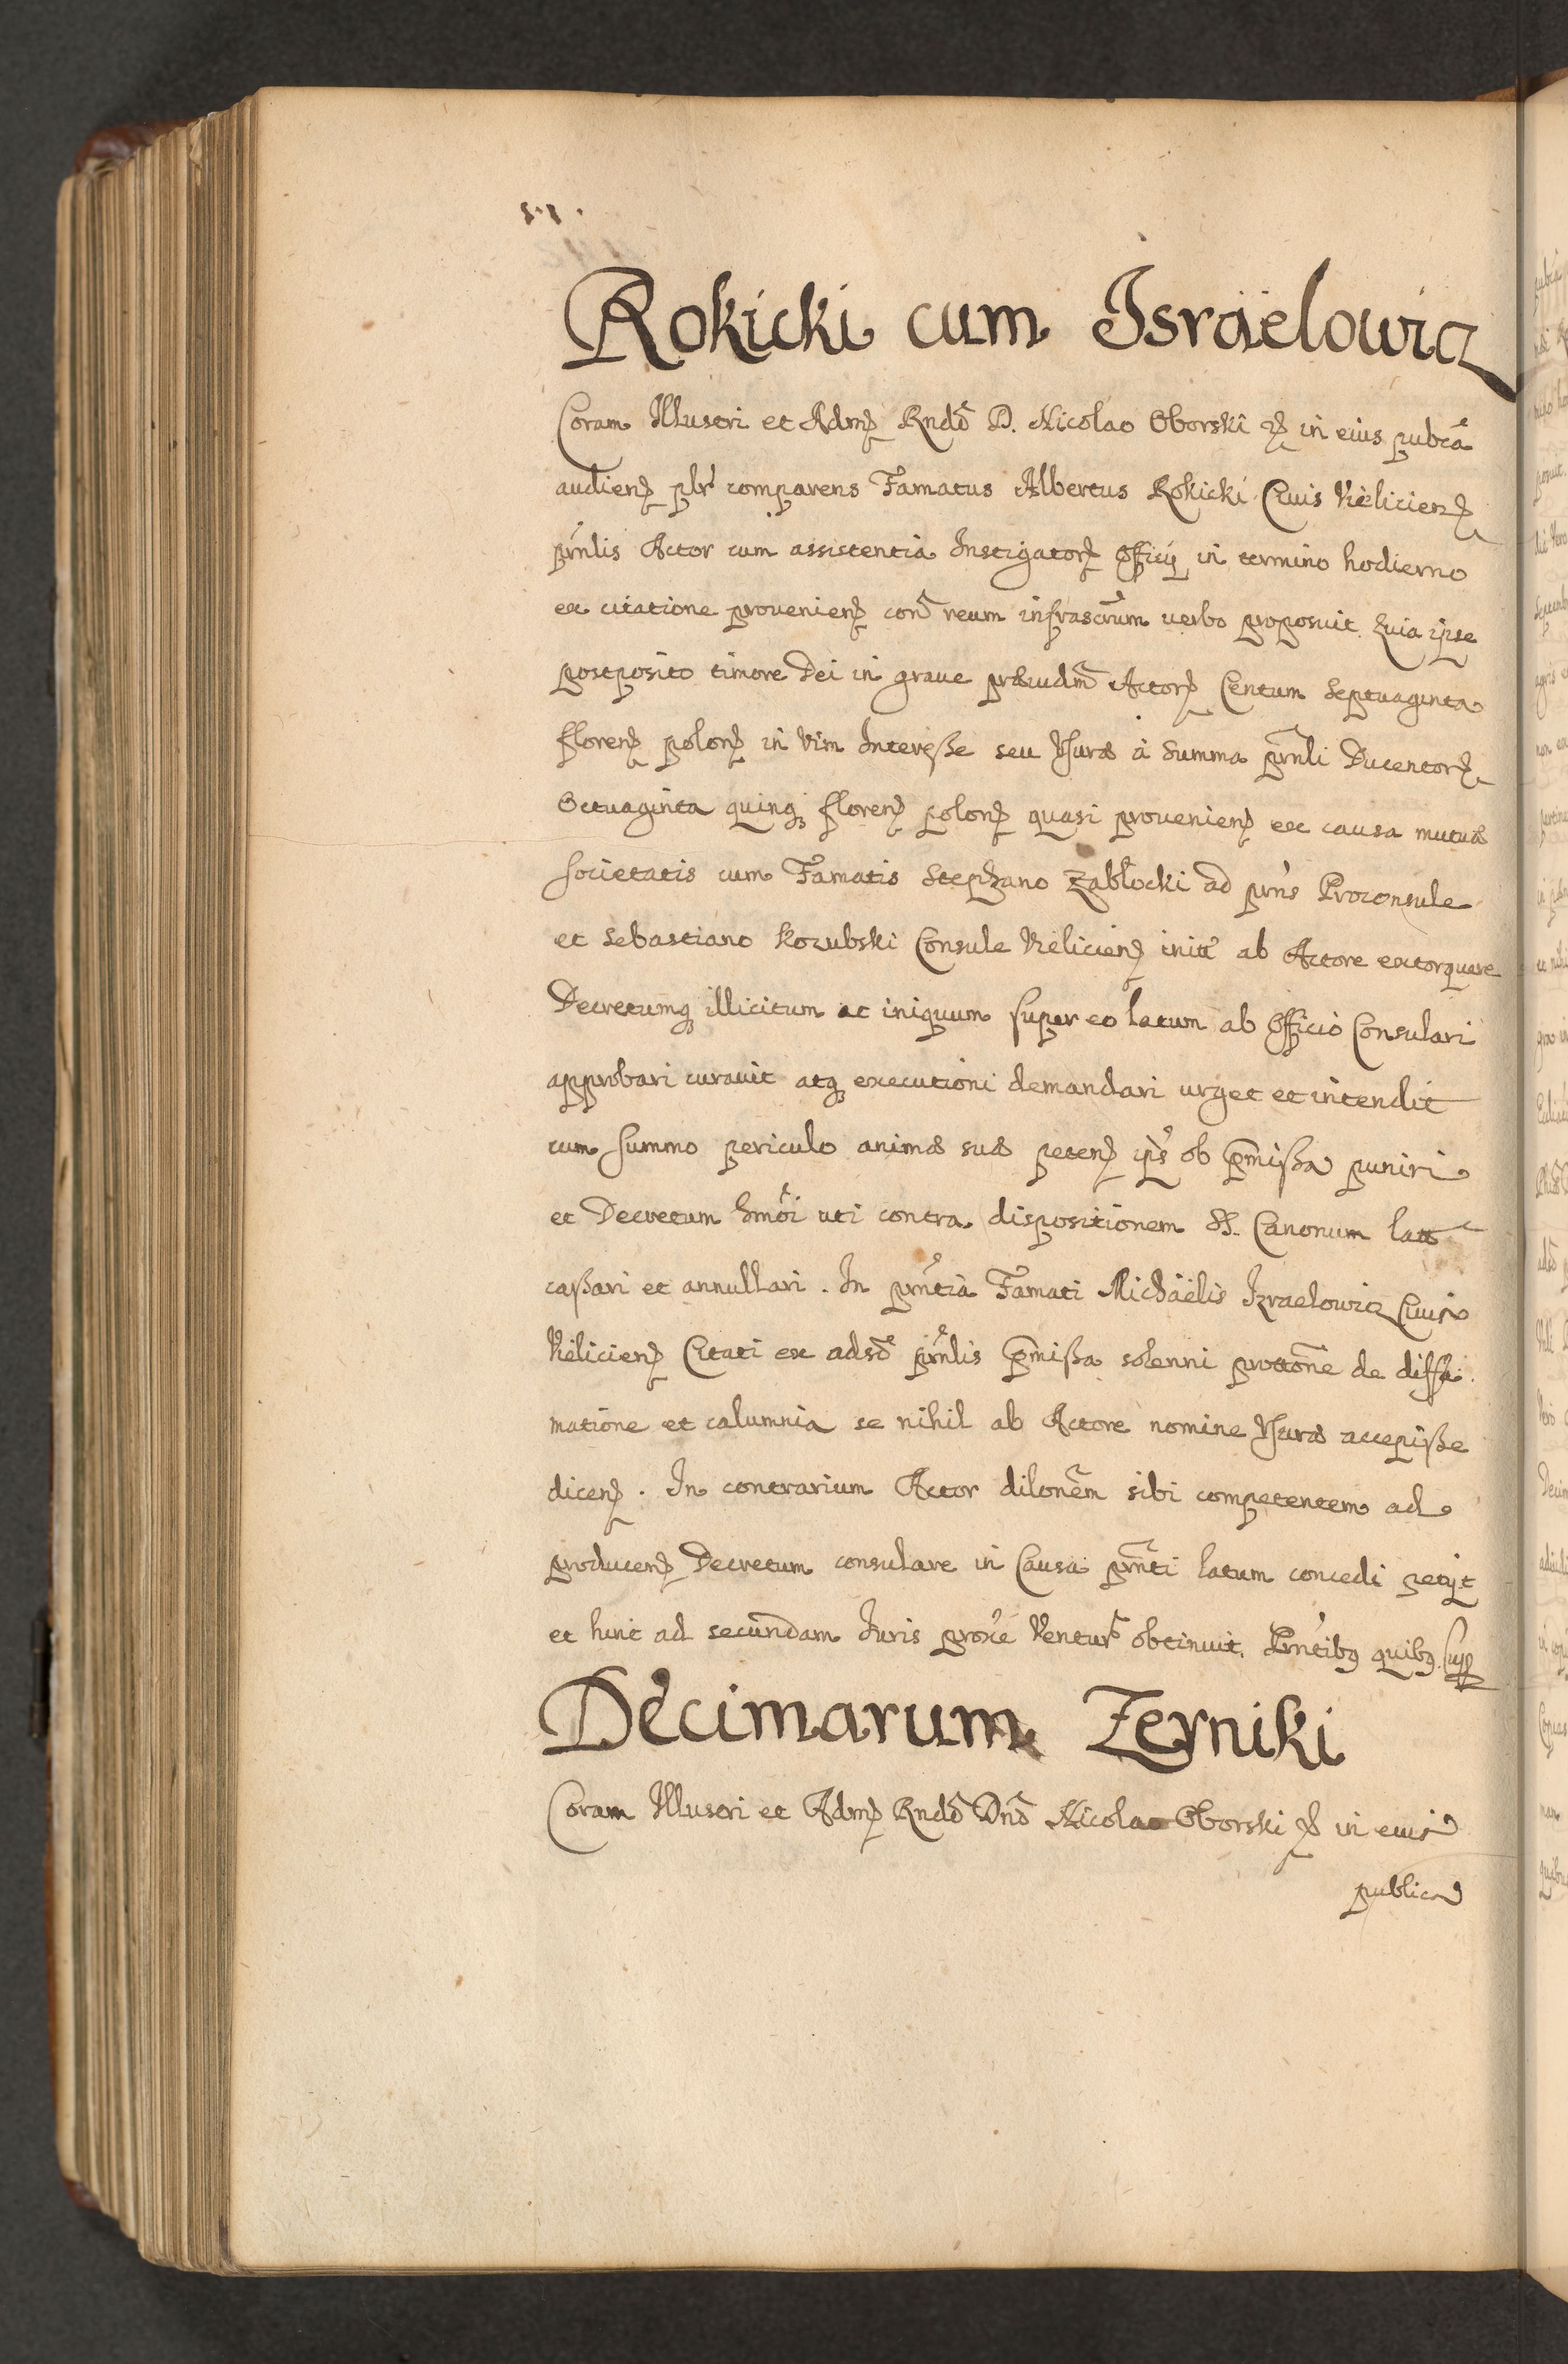 Rokicki cum Israëlowicz
Coram Illustri et Admꝫ Rndo D. Nicolao Oborski ꝛꝫ in eius pubca
audienꝫ plr comparens Famatus Albertus Rokicki Ciuis Kielicienꝫ
prnlis Actor cum assistentia Instigatorꝫ Officij in termino hodierno
ex citatione prouenienꝫ con reum infrascrum uerbo proposuit. Quia ipse
postposito timore Dei in graue præiudm Actorꝫ Centum Septuaginta
florenꝫ polonꝫ in Vim Interesße seu Vsuræ à Summa prnli Ducentorꝫ
Octuaginta quinqꝫ florenꝫ polonꝫ quasi prouenienꝫ ex causa mutuæ
societatis cum Famatis Stephano Zabłocki ad prns Proconsule
et Sebastiano Kozubski Consule Kielicienꝫ init ab Actore extorquere
Decretumqꝫ illicitum ac iniquum super eo latum ab Officio Consulari
approbari curauit atqꝫ executioni demandari urget et intendit
cum summo periculo animæ suæ petenꝫ ips ob pmißa puniri
et Decretum hmoi uti contra dispositionem SS. Canonum latt
caßari et annullari. In prntia Famati Michaëlis Izraelowicz Ciuis
Kielicienꝫ Citati ex adso prnlis pmißa solenni prottone de diffa
matione et calumnia se nihil ab Actore nomine Vsuræ accepiße
dicenꝫ. In contrarium Actor dilonem sibi competentem ad
producenꝫ Decretum consulare in Causa prnti latum concedi petijt
et hinc ad secundam Iuris proxe Ventur obtinuit. Prntibꝫ quibꝫ supp
Decimarum Zerniki
Coram Illustri et Admꝫ Rndo Dno Nicolao Oborski ꝛꝫ in eius
publica